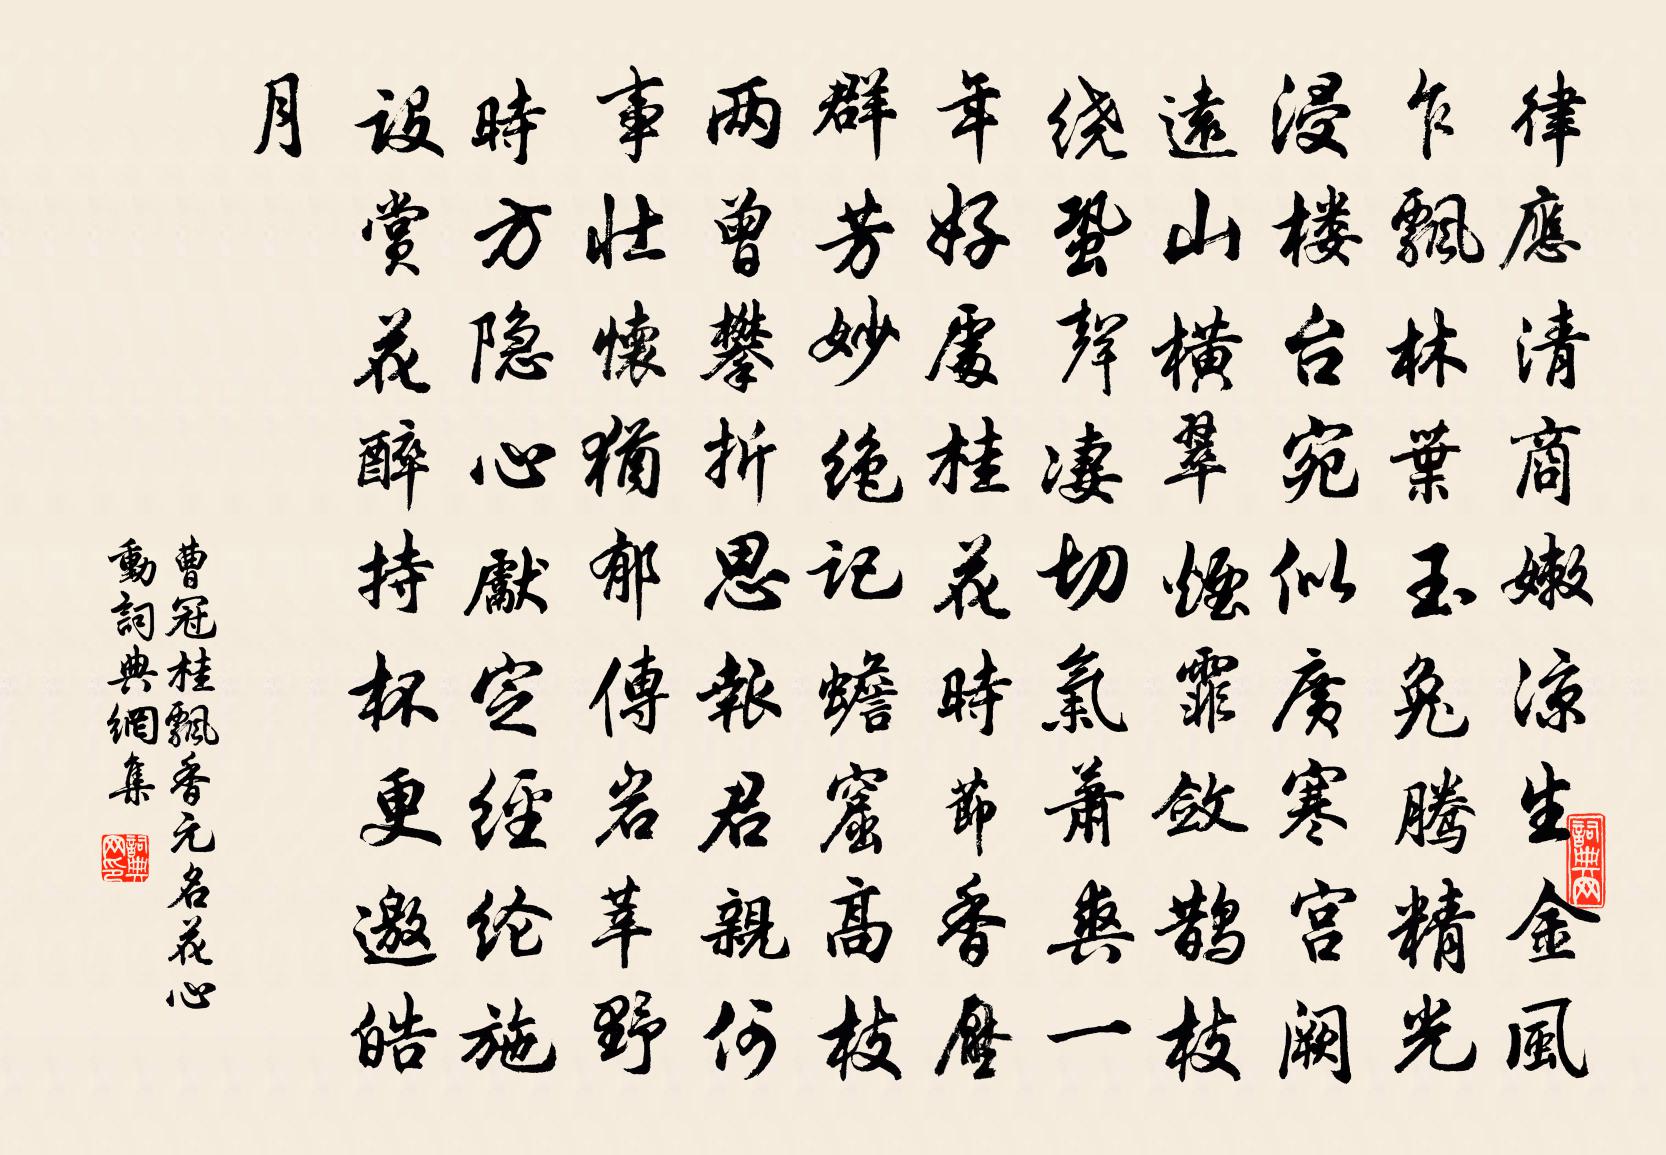 律應清商嫩涼生金風
乍飄林葉玉兔騰精光
浸楼台宛似廣寒宮阙
遠山橫翠煙霏斂鹊枝
绕蛩聲凄切氣蕭爽一
年好處桂花時節香壓
群芳妙绝記蟾窟高枝
两曾攀折思報君親何
事壮懷猶郁傅岩莘野
時方隐心獻定經纶施
設賞花醉持杯更邀皓
月
曹冠桂飄香元名花心
動詞典網集
詞典网
詞典网印